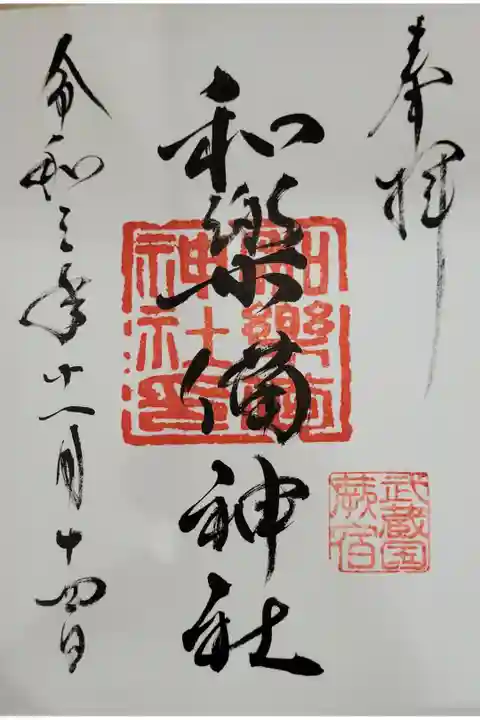 奉拝
和樂備神社
和樂備神社印
武蔵国蕨宿
令和三年十一月十四日